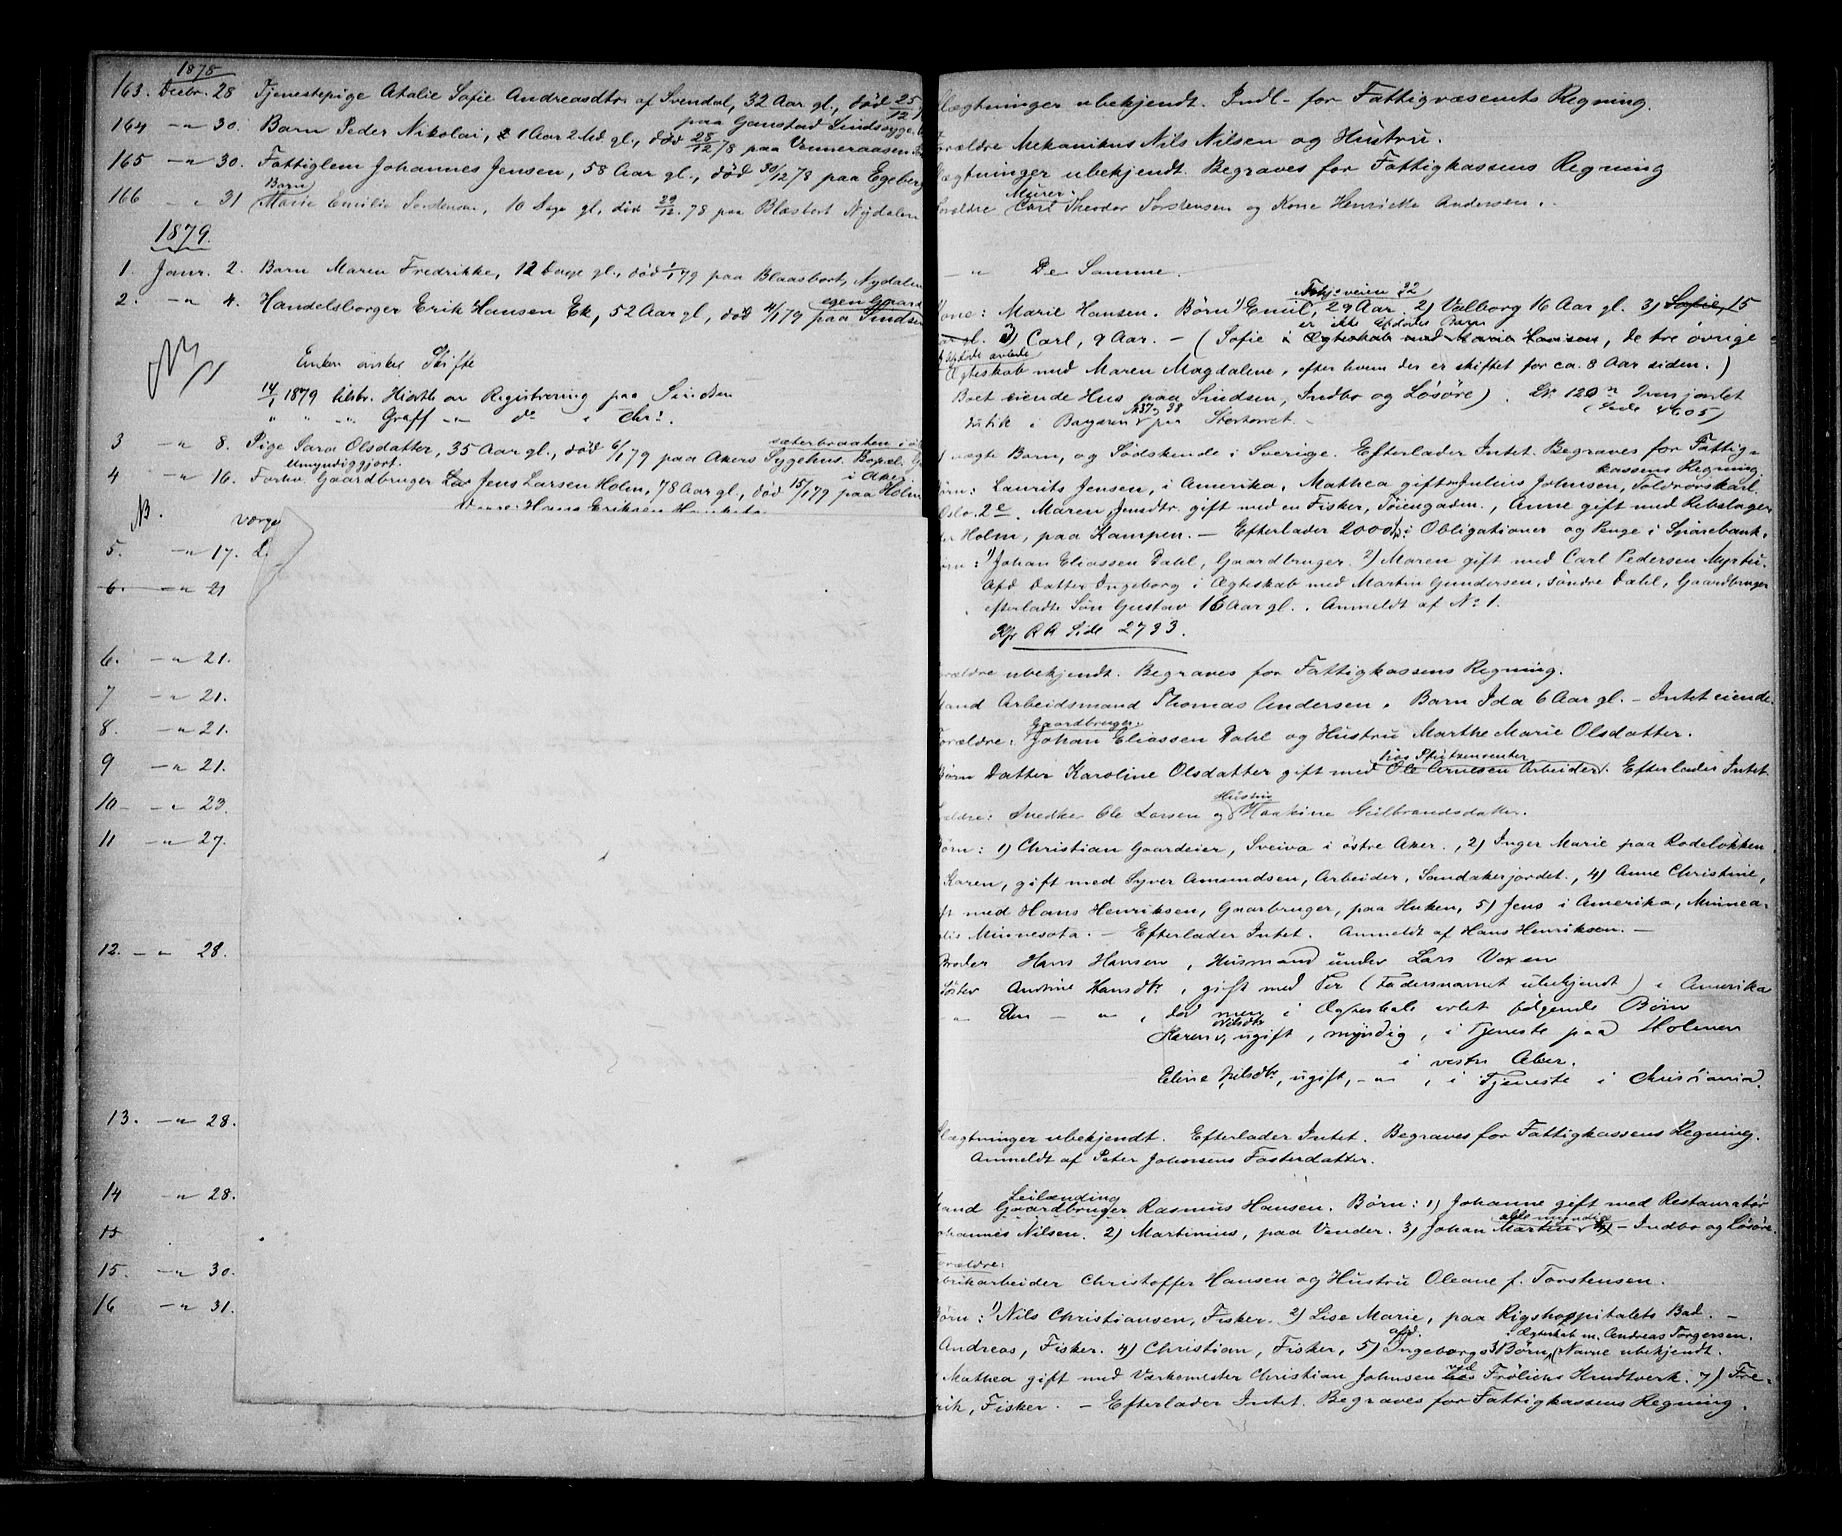 1878
163. Decbr. 28 Tjenestepige Atalie Sofie Andreasdtr. af Svendal, 32 Aar gl., død 25/12
paa Gaustad Sindssyge
164 -"- 30. Barn Peder Nikolai, 1 Aar 2 Md. gl., død 28/12 78 paa Vinneraasen
165 -"- 30. Fattiglem Johannes Jensen, 58 Aar gl., død 30/12 78 paa Egeberg
Barn
166 -"- 31 Marie Emilie, 10 Dage gl., død 29/12. 78 paa Blaasbort Nydalen
1879.
1. Janr. 2. Barn Maren Fredrikke, 12 Dage gl., død 1/1 79 paa Blaasbort, Nydalen
egen Gaard
2. -"- 4. Handelsborger Erik Hansen Ek, 52 Aar gl., død 4/1 79 paa Sindsen
Enken ønsker Skifte
14/1 1879 tilskr. Hiorth om Registrering paa Sindsen
" " -"- Graff -"- do i Chra.
sæterbraaten i
3 -"- 8. Pige Sara Olsdatter, 35 Aar gl., død 6/1 79 paa Akers Sygehus. Bopæl.
Umyndiggjort. i Aker
4 -"- 16. Forhv. Gaardbruger Jens Larsen Holm, 78 Aar gl., død 15/1 79 paa Holm
Hans Eriksen
NB. Værge
5. -"- 17. L.
6. -"- 21
6. -"- 21.
7 -"- 21.
8. -"- 21.
9 -"- 21.
10 -"- 23.
11 -"- 27.
12. -"- 28.
13. -"- 28.
14 -"- 28.
15
15. -"- 30.
16 -"- 31.
lægtninger ubekjendt. Indl. for Fattigvæsenets Regning.
orældre Mekanikus Nils Nilsen og Hustru.
lægtninger ubekjendt. Begraves for Fattigkassens Regning
Murer
orældre Carl Theodor Torstensen og Kone Henriette Andersen.
-"- De Samme.
32
one: Marie Hansen. Børn 1) Emil, 29 Aar. 2) Valborg 16 Aar gl. 3) Sofie, 15
er ikke Afdødes Barn
gl. 3) Carl, 9 Aar. - (Sofie i Ægteskab med Marie Hansen, de tre øvrige
Ægteskab med Maren Magdalene, efter hvem der er skiftet for ca. 8 Aar siden.)
Boet eiende Hus paa Sindsen, Indbo og Løsøre).
(Side 4605)
Butik i Basaren No 37 og 38 paa Stortorvet.
vagte Barn, og Sødskende i Sverige. Efterlader Intet. Begraves for Fattig-
kassens Regning.
ørn: Laurits Jensen, i Amerika, Mathea gift m Julius Johnsen, Toldrorskarl
Oslo. 2e. Maren Jensdtr. gift med en Fisker, Tøiengaden., Anne gift med Rebslager
Holm, paa Kampen. - Efterlader 2000 i Obligationer og Penge i Sparebank.
ørn: 1) Johan Eliassen Dahl, Gaardbruger. 2) Maren gift med Carl Pedersen Myrtu.
Afd Datter Ingeborg i Ægteskab med Martin Gundersen, søndre Dahl, Gaardbruger
efterladte Søn Gustav 16 Aar gl. Anmeldt af No 1.
Side 2793.
orældre ubekjendt. Begraves for Fattigkassens Regning.
and Arbeidsmand Thomas Andersen. Barn Ida 6 Aar gl. - Intet eiende.
Gaardbruger.
orældre: Johan Eliassen Dahl og Hustru Marthe Marie Olsdatter.
Børn Datter Karoline Olsdatter gift med Ole Arnesen Arbeider. Efterlader Intet.
Hustru
ældre: Snedker Ole Larsen og Haakine Guldbrandsdatter.
Børn: 1) Christian Gaardeier, Sveiva i østre Aker., 2) Inger Marie paa Rodeløkken.
Karen, gift med Syver Amundsen, Arbeider, Sandakerjordet., 4) Anne Christine,
ft med Hans Henriksen, Gaarbruger, paa Huken, 5) Jens i Amerika, Minnea-
lis Minnesota. - Efterlader Intet. Anmeldt af Hans Henriksen. -
Broder Hans Hansen, Husmand under Lars Voxen
Søster Andrine Hansdtr., gift med Per (Fadersnavnet ubekjendt) i Amerika
-"- Elen -"-, død men i Ægteskab avlet følgende Børn
Nilsdtr
Karen, ugift, myndig, i Tjeneste paa Holmen
i vestre Aker.
Eline Nilsdtr., ugift, -"-, i Tjeneste i Christiania.
lægtninger ubekjendt. Efterlader Intet. Begraves for Fattigkassens Regning.
Anmeldt af Peter Johnsens Fosterdatter.
Leilænding
and Gaardbruger Rasmus Hansen. Børn: 1) Johanne gift med Restauratør
alle myndig
ohannes Nilsen. 2) Martinius, paa Vender. 3) Johan Martin - Indbo og Løsøre.
orældre:
brikarbeider Christoffer Hansen og Hustru Oleane f. Torstensen.
Børn: 1) Nils Christiansen, Fisker. 2) Lise Marie, paa Rigshospitalets Bad. -
afd. i Ægteskab m. Andreas Torgersen.
Andreas, Fisker. 4) Christian, Fisker, 5) Ingeborgs 3 Børn, (Navne ubekjendt.
ved
Mathea gift med Værkemester Christian Johnsen hos Frølichs Hundtverk. 7) Fre-
rik, Fisker. - Efterlader Intet. Begraves for Fattigkassens Regning.